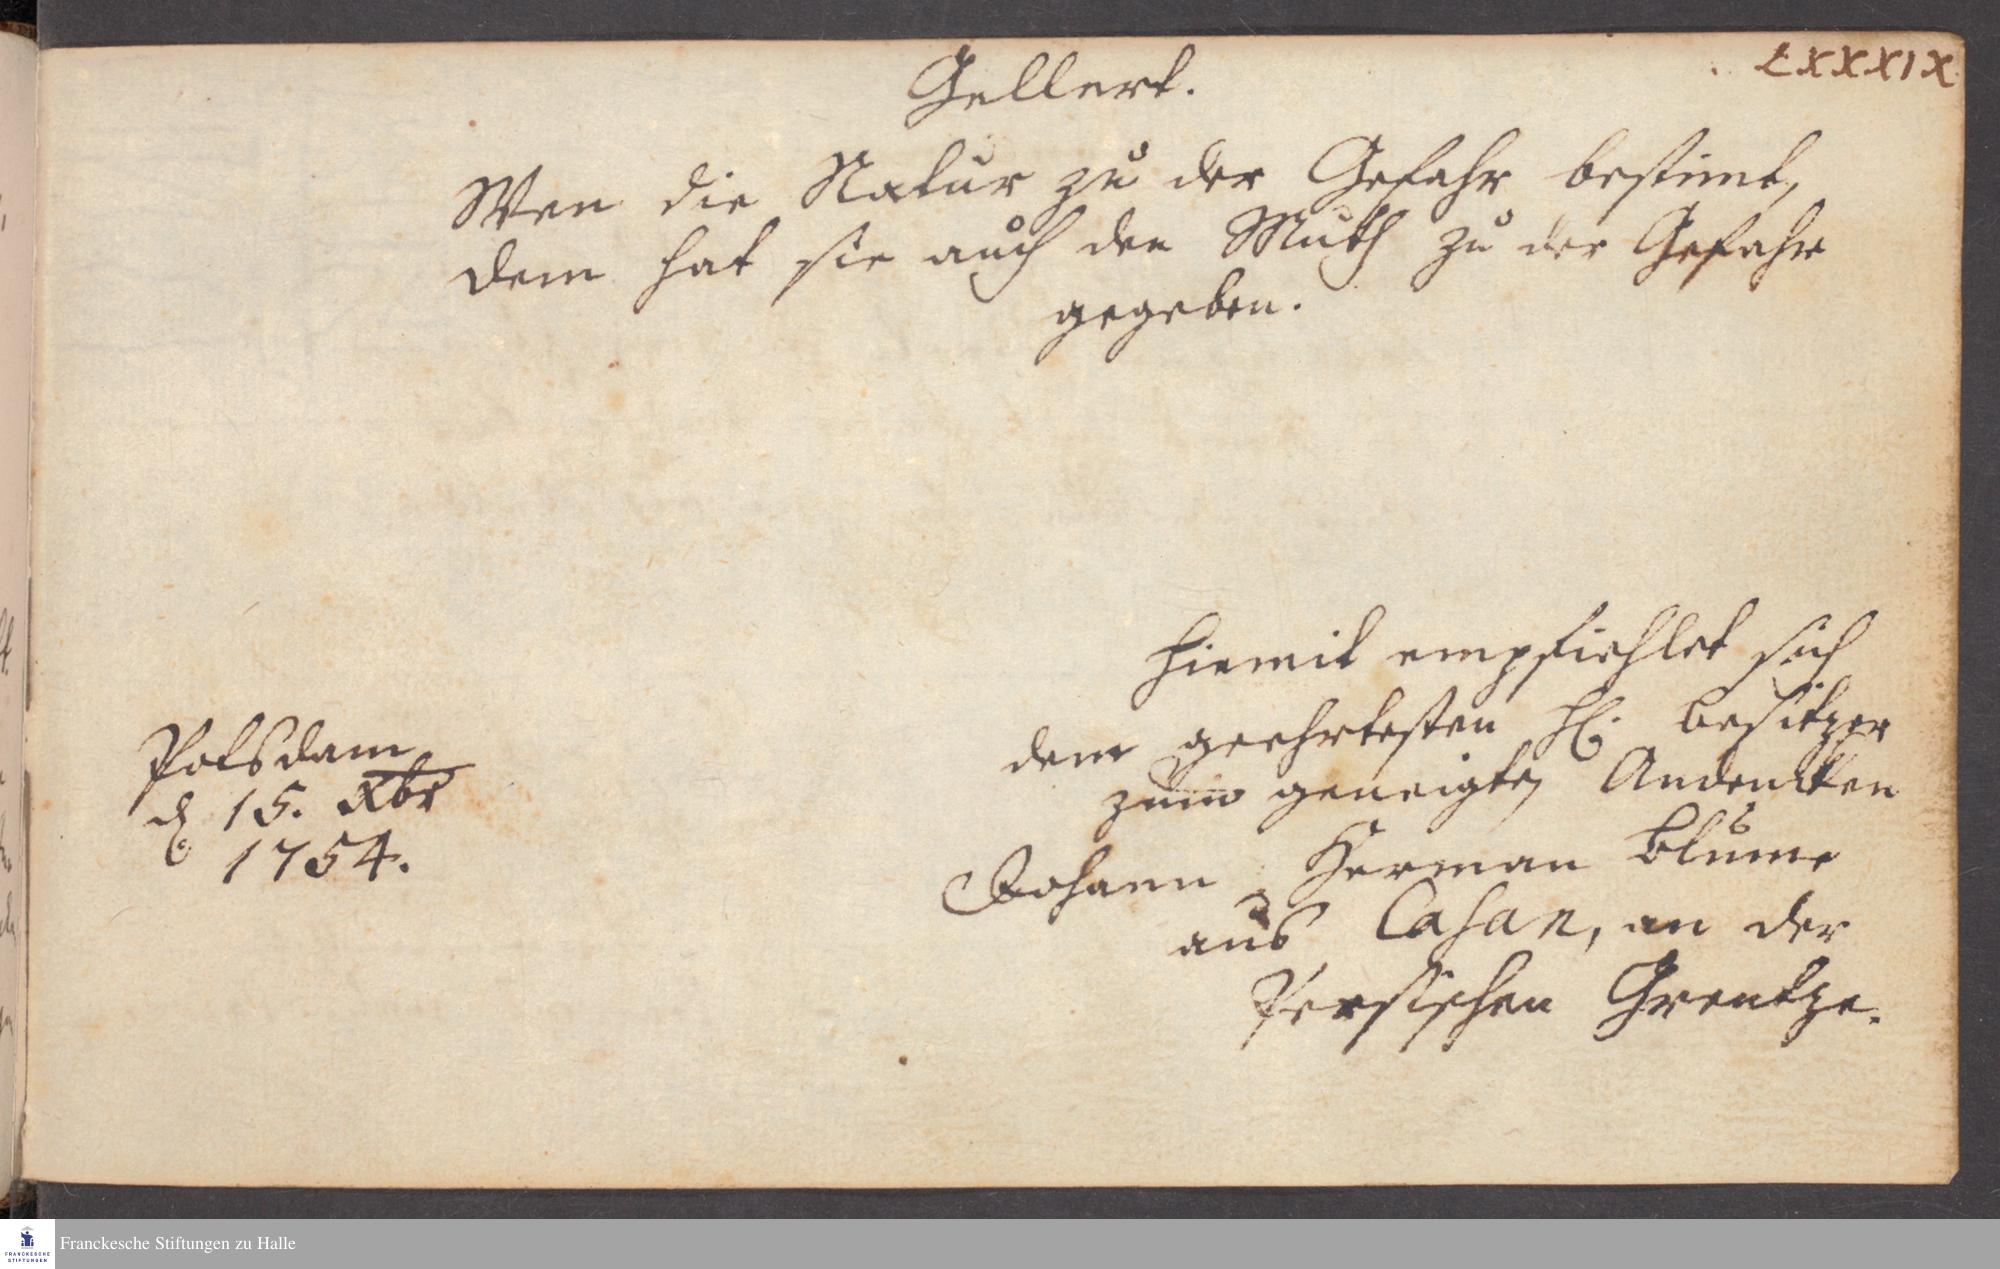 LXXXIX
Gellert.
Wen die Natur zu der Gefahr bestimt,
dem hat sie auch den Muth zu der Gefahr
gegeben.
Hiemit empfiehlet sich
dem geehrtesten H. Besitzer
zum geneigten Andencken
Johann Herman Blume
aus Casan, an der
Persischen Grentze.
Potsdam
d 15. Xbr
1754.
FRANCKESCHE
STIFTUNGEN
Franckesche Stiftungen zu Halle